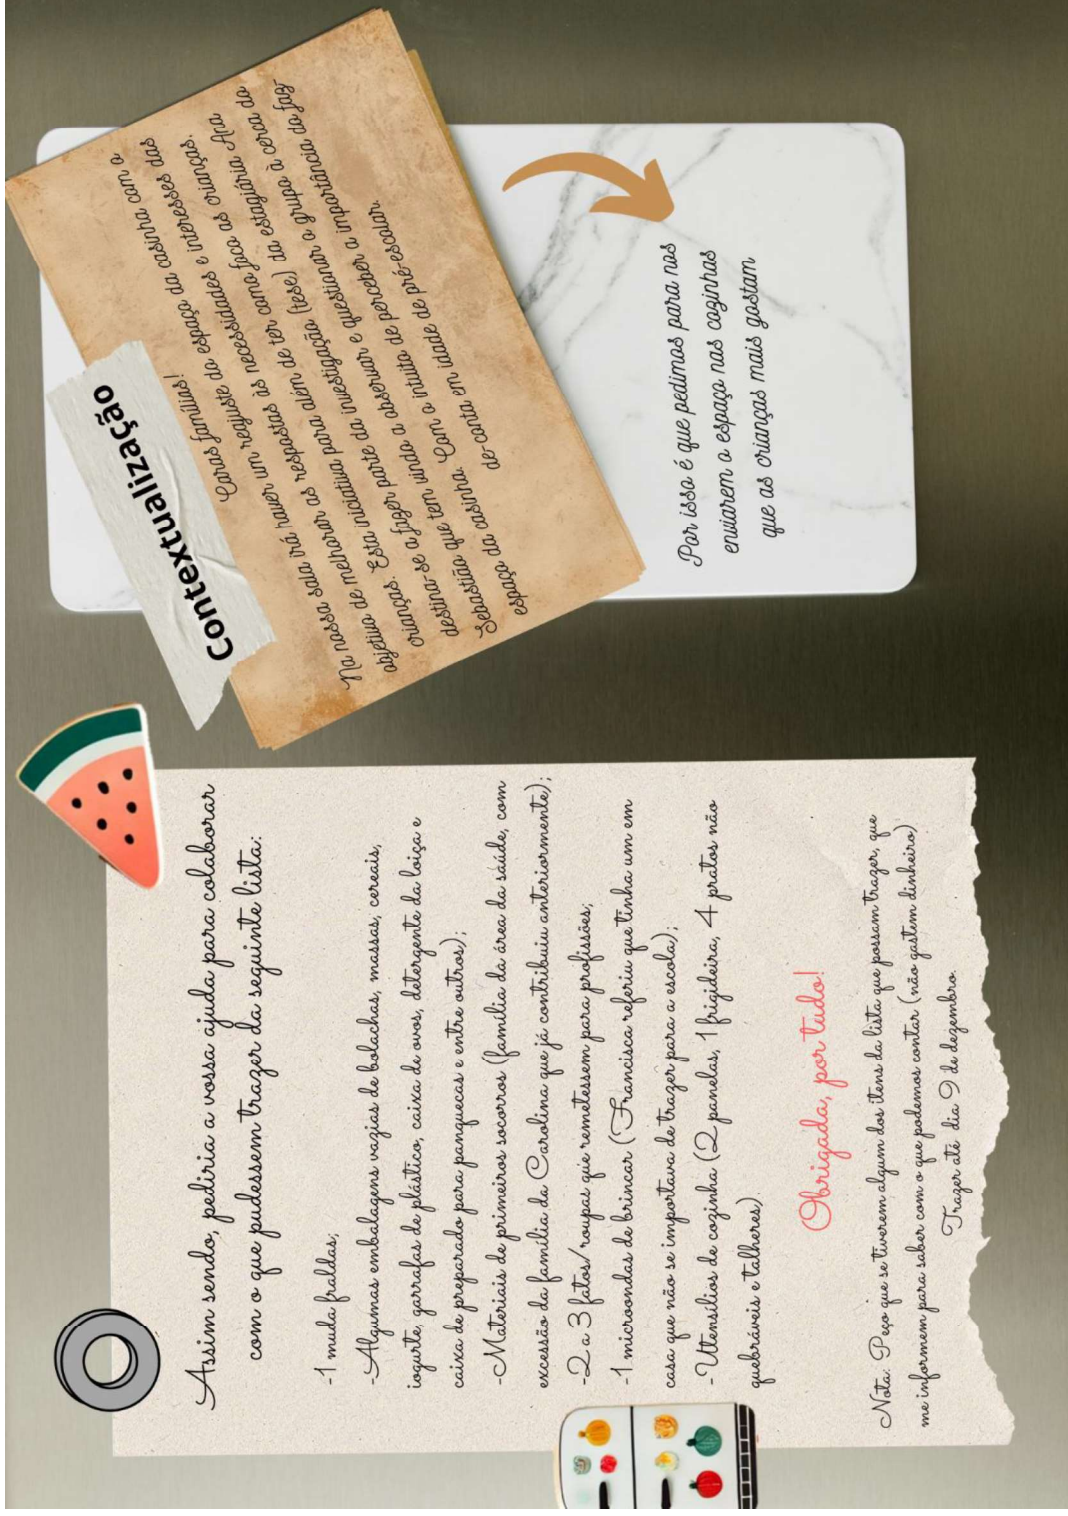 Contextualização
Caras famílias!
Na nossa sala irá haver um reajuste do espaço da casinha com o
objetivo de melhorar as respostas às necessidades e interesses das
crianças. Esta iniciativa para além de ter como foco as crianças
destina-se a fazer parte da investigação (tese) da estagiária Ana
Sebastião que tem vindo a observar e questionar o grupo à cerca do
espaço da casinha. Com o intuito de perceber a importância do faz-
de-conta em idade de pré-escolar.
Por isso é que pedimos para nos
enviarem o espaço nas cozinhas
que as crianças mais gostam
Assim sendo, pediria a vossa ajuda para colaborar
com o que pudessem trazer da seguinte lista:
-1 muda fraldas;
-Algumas embalagens vazias de bolachas, massas, cereais,
iogurte, garrafas de plástico, caixa de ovos, detergente da loiça e
caixa de preparado para panquecas e entre outros);
-Materiais de primeiros socorros (família da área da saúde, com
excessão da família da Carolina que já contribuiu anteriormente);
-2 a 3 fatos/roupas que remetessem para profissões;
-1 microondas de brincar (Francisca referiu que tinha um em
casa que não se importava de trazer para a escola);
-Utensílios de cozinha (2 panelas, 1 frigideira, 4 pratos não
quebráveis e talheres).
Obrigada, por tudo!
Nota: Peço que se tiverem algum dos itens da lista que possam trazer, que
me informem para saber com o que podemos contar (não gastem dinheiro)
Trazer até dia 9 de dezembro.